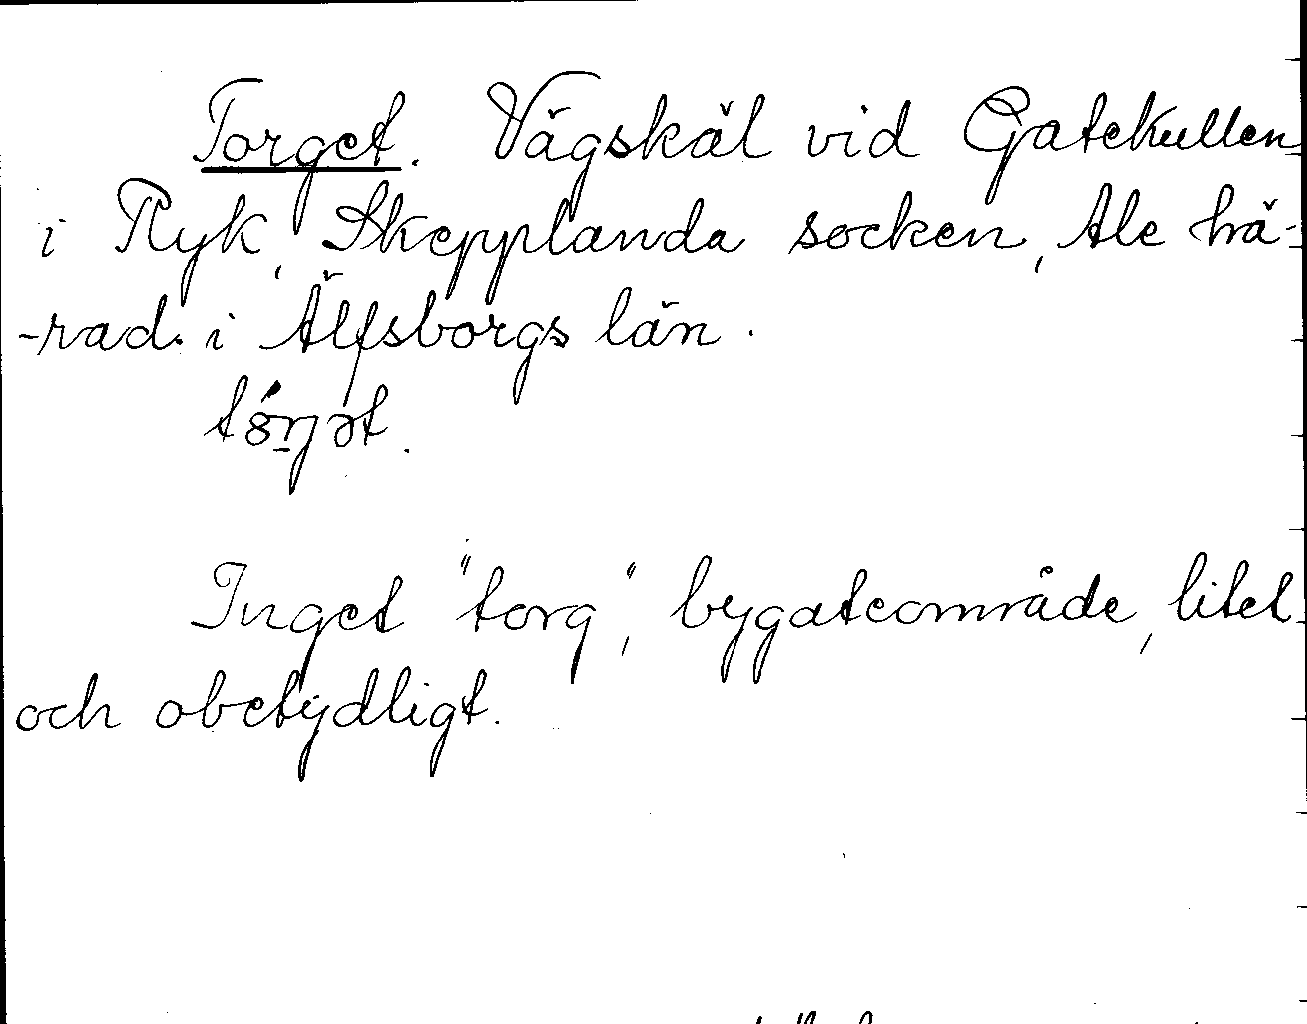 Torget. Vägskäl vid Gatekullen
i Ryk, Skepplanda socken, Ale hä-
-rad. i Älfsborgs län.
Inget "torg", bygateområde, litet
och obetydligt.